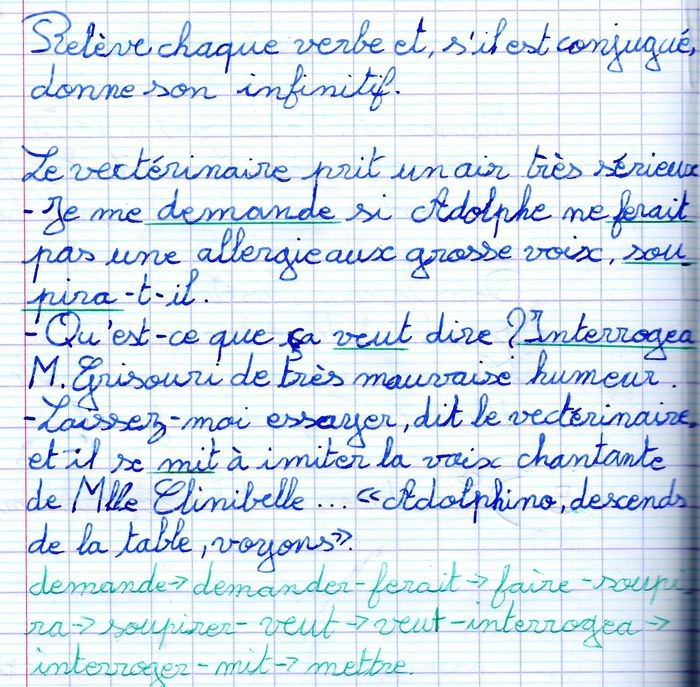 Relève chaque verbe et, s'il est conjugué,
donne son infinitif.
Le vectérinaire prit un air très sérieux
- Je me demande si Adolphe ne ferait
pas une allergie aux grosse voix, sou-
pira-t-il.
- Qu'est-ce que ça veut dire ? Interrogea
M. Grisouri de très mauvaise humeur.
- Laissez-moi essayer, dit le vectérinaire,
et il se mit à imiter la voix chantante
de Mlle Clinibelle ... « Adolphino, descends
de la table, voyons ».
demande → demander - ferait → faire - soupi-
ra → soupirer - veut → veut - interrogea →
interroger - mit → mettre.